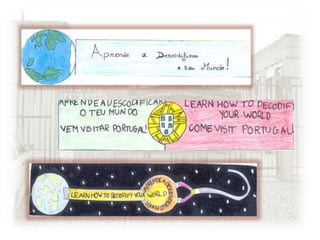 Aprende a Descodificar
o teu Mundo!
APRENDE A DESCODIFICAR
O TEU MUNDO
VEM VISITAR PORTUGAL!
LEARN HOW TO DECODIFY
YOUR WORLD
COME VISIT PORTUGAL!
LEARN HOW TO DECODIFY YOUR WORLD